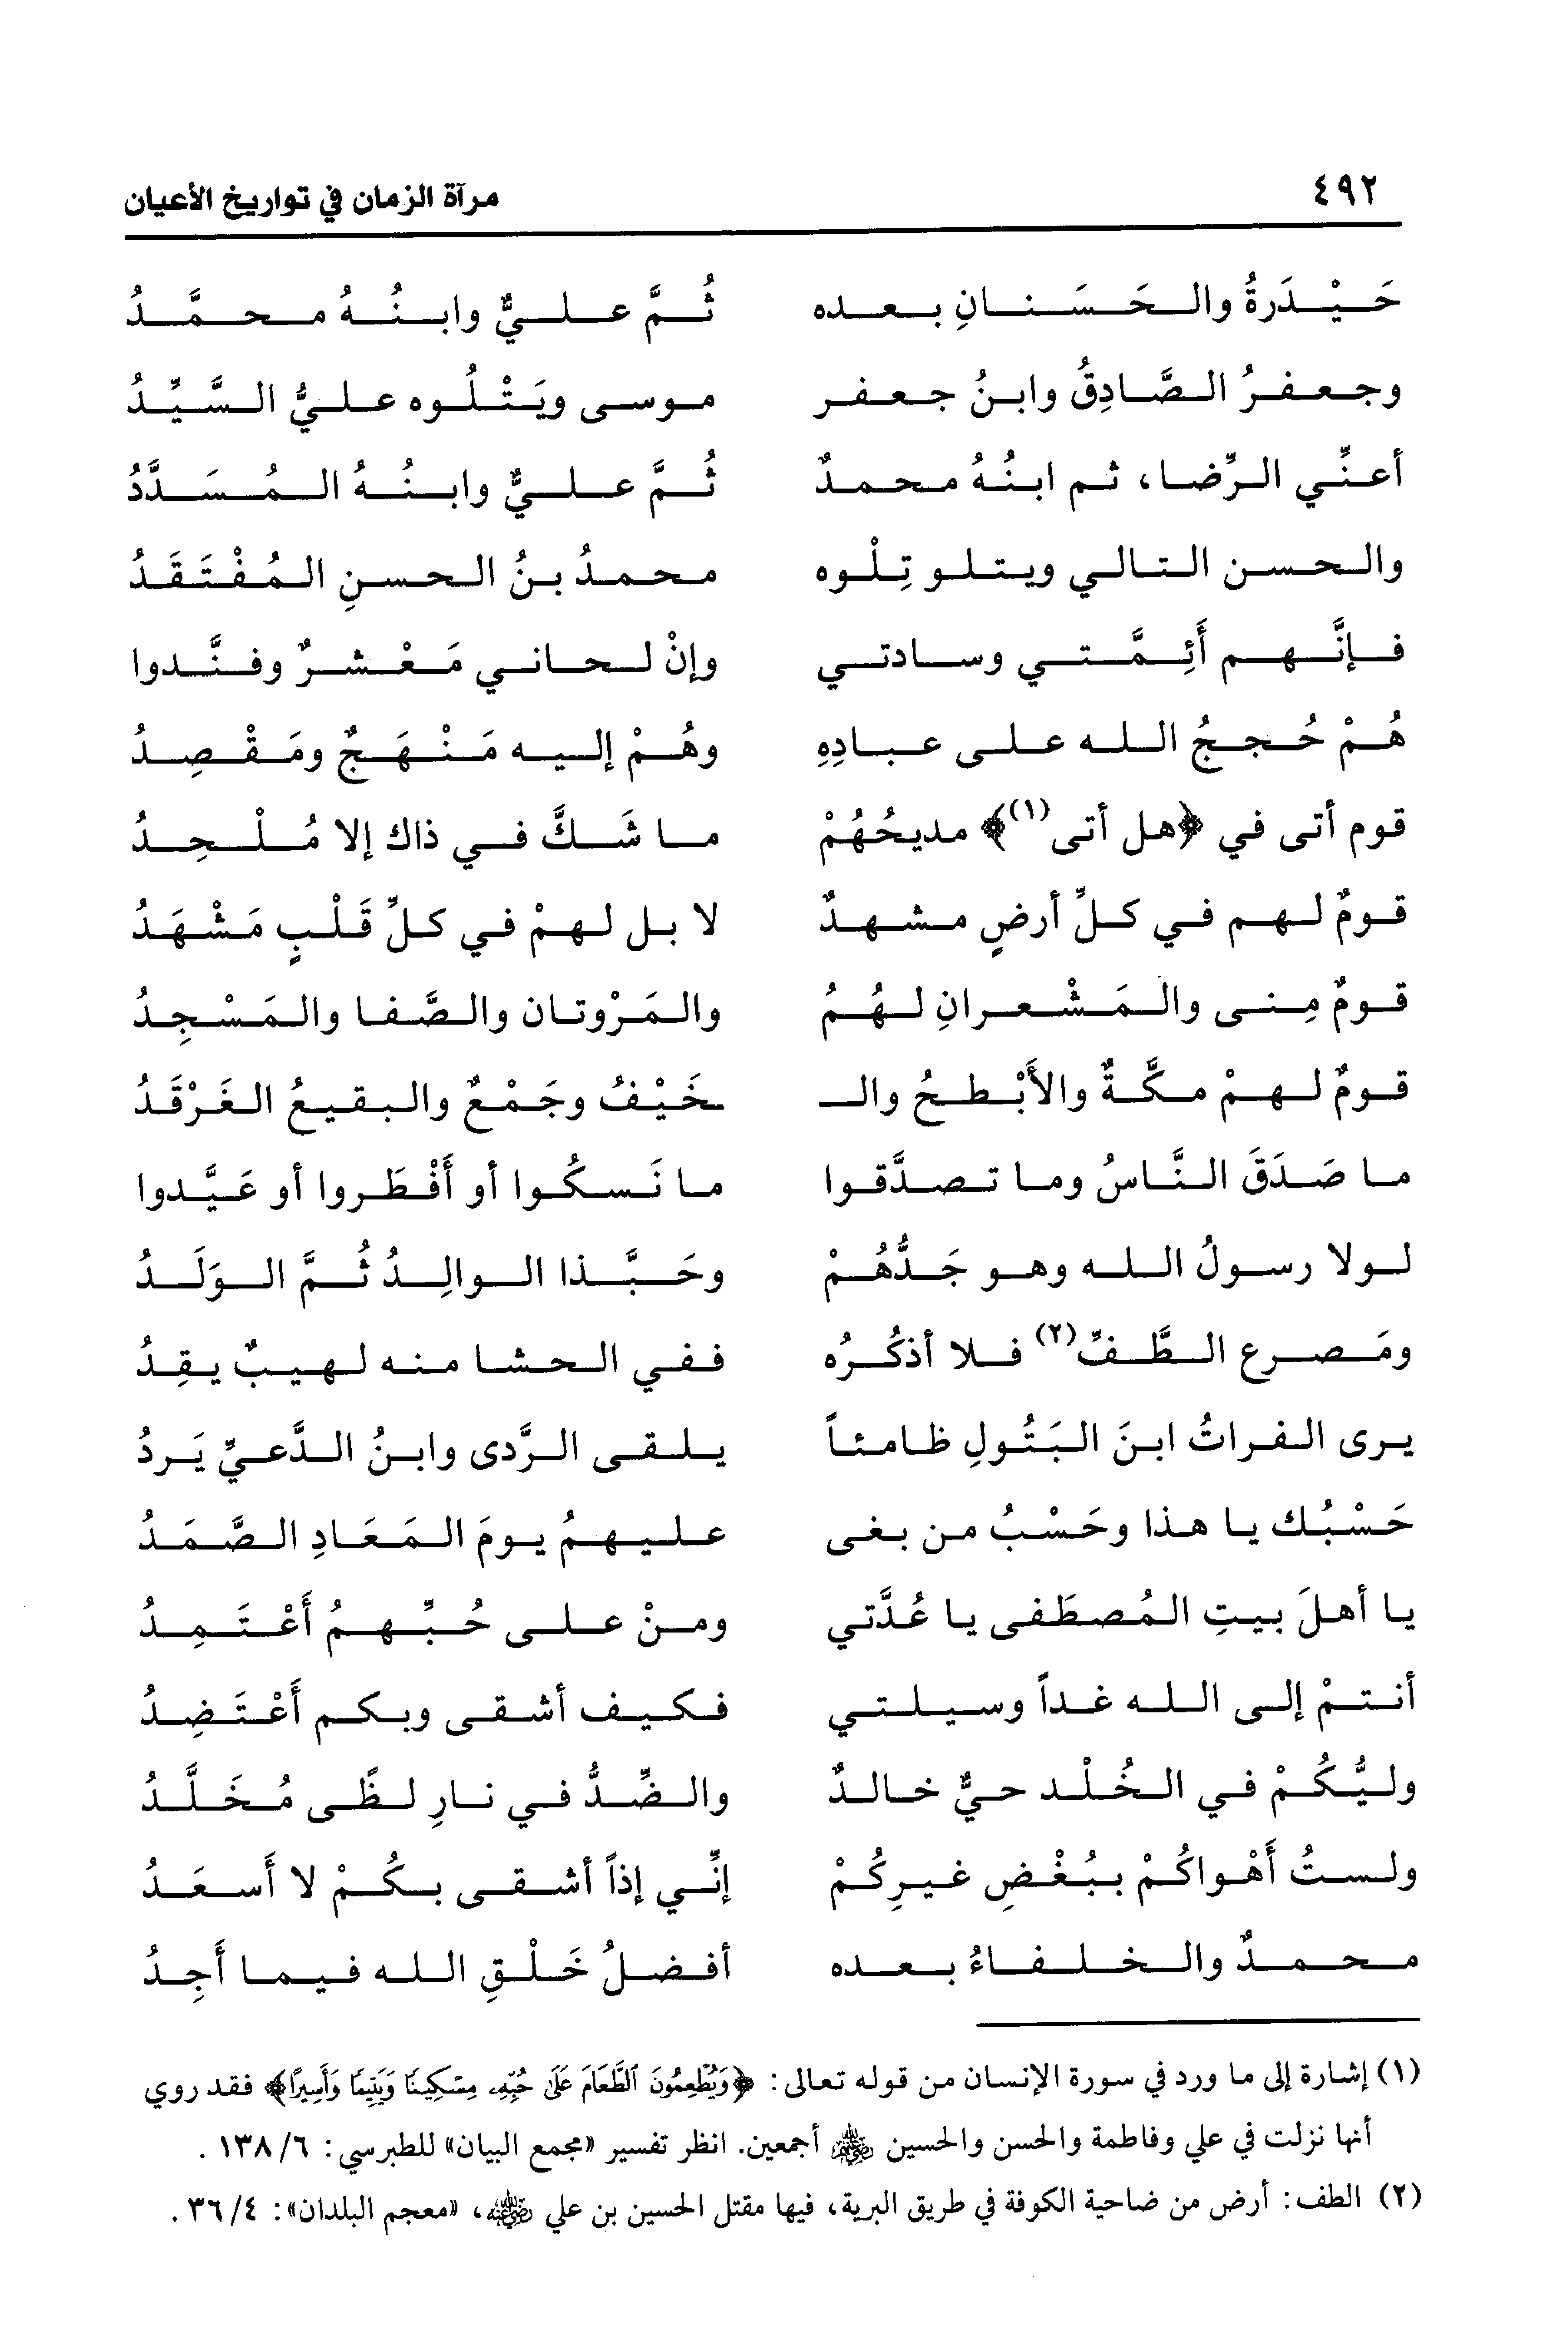 ٤٩٢ مرآة الزمان في تواريخ الأعيان
حَيْدَرةُ والحَسَنانِ بعده ثُمَّ عليٌّ وابنُهُ محمَّدُ
وجعفرُ الصَّادِقُ وابنُ جعفر موسى ويَتْلُوه عليُّ السَّيِّدُ
أعنِّي الرِّضا، ثم ابنُهُ محمدٌ ثُمَّ عليٌّ وابنُهُ المُسَدَّدُ
والحسن التالي ويتلو تِلْوه محمدُ بنُ الحسنِ المُفْتَقَدُ
فإنَّهم أَئِمَّتي وسادتي وإنْ لحاني مَعْشرٌ وفنَّدوا
هُمْ حُججُ الله على عبادِهِ وهُمْ إليه مَنْهَجٌ ومَقْصِدُ
قوم أتى في ﴿هل أتى(١)﴾ مديحُهُمْ ما شَكَّ في ذاك إلا مُلْحِدُ
قومٌ لهم في كلِّ أرضٍ مشهدٌ لا بل لهمْ في كلِّ قَلْبٍ مَشْهَدُ
قومٌ مِنى والمَشْعرانِ لهُمُ والمَرْوتان والصَّفا والمَسْجِدُ
قومٌ لهمْ مكَّةٌ والأَبْطحُ والـ ـخَيْفُ وجَمْعٌ والبقيعُ الغَرْقَدُ
ما صَدَقَ النَّاسُ وما تصدَّقوا ما نَسكُوا أو أَفْطَروا أو عَيَّدوا
لولا رسولُ الله وهو جَدُّهُمْ وحَبَّذا الوالِدُ ثُمَّ الوَلَدُ
ومَصرع الطَّفِّ(٢) فلا أذكُرُه ففي الحشا منه لهيبٌ يقِدُ
يرى الفراتُ ابنَ البَتُولِ ظامئاً يلقى الرَّدى وابنُ الدَّعيِّ يَردُ
حَسْبُك يا هذا وحَسْبُ من بغى عليهمُ يومَ المَعَادِ الصَّمَدُ
يا أهلَ بيتِ المُصطَفى يا عُدَّتي ومنْ على حُبِّهمُ أَعْتَمِدُ
أنتمْ إلى الله غداً وسيلتي فكيف أشقى وبكم أَعْتَضِدُ
وليُّكُمْ في الخُلْد حيٌّ خالدٌ والضِّدُّ في نارِ لظًى مُخَلَّدُ
ولستُ أَهْواكُمْ ببُغْضِ غيرِكُمْ إنِّي إذاً أشقى بكُمْ لا أَسعَدُ
محمدٌ والخلفاءُ بعده أفضلُ خَلْقِ الله فيما أَجِدُ
(١) إشارة إلى ما ورد في سورة الإنسان من قوله تعالى: ﴿وَيُطْعِمُونَ ٱلطَّعَامَ عَلَىٰ حُبِّهِۦ مِسْكِينًا وَيَتِيمًا وَأَسِيرًا﴾ فقد روي
أنها نزلت في علي وفاطمة والحسن والحسين ﷺ أجمعين. انظر تفسير «مجمع البيان» للطبرسي: ١٣٨/٦.
(٢) الطف: أرض من ضاحية الكوفة في طريق البرية، فيها مقتل الحسين بن علي رضي الله عنه، «معجم البلدان»: ٣٦/٤.